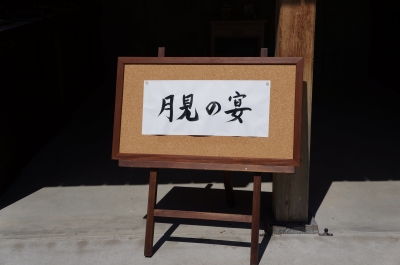 月見の宴